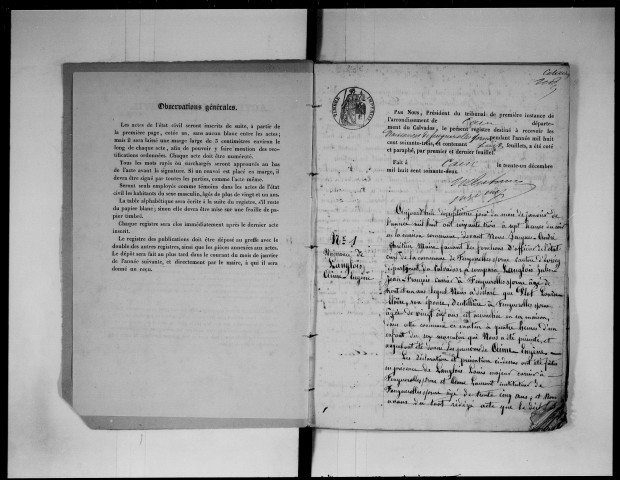 Observations générales.
Les actes de l'état civil seront inscrits de suite, à partir de
la première page, cotée un, sans aucun blanc entre les actes;
mais il sera laissé une marge large de 5 centimètres environ le
long de chaque acte, afin de pouvoir y faire mention des rec-
tifications ordonnées. Chaque acte doit être numéroté.
Tous les mots rayés ou surchargés seront approuvés au bas
de l'acte avant la signature. Si un renvoi est placé en marge, il
devra être signé par toutes les parties, comme l'acte même.
Seront seuls employés comme témoins dans les actes de l'état
civil les habitants du sexe masculin, âgés de plus de vingt et un ans.
La table alphabétique sera écrite à la suite du registre, s'il reste
du papier blanc; sinon elle devra être mise sur une feuille de pa-
pier timbré.
Chaque registre sera clos immédiatement après le dernier acte
inscrit.
Le registre des publications doit être déposé au greffe avec le
double des autres registres, ainsi que les pièces annexées aux actes.
Le dépôt sera fait au plus tard dans le courant du mois de janvier
de l'année suivante, et directement par le maire, à qui il sera
donné un reçu.
PAR NOUS, Président du tribunal de première instance de
l'arrondissement de Caen départe-
ment du Calvados, le présent registre destiné à recevoir les
Naissances de pendant l'année mil huit
cent soixante-trois, et contenant feuillets, a été coté
et paraphé, par premier et dernier feuillet.
Fait à Caen le trente-un décembre
mil huit cent soixante-deux.
No. 1
Naissance de
Langlois
Côme Eugène
Aujourd'hui jour du mois de janvier de
l'an mil huit cent soixante trois à sept heures du soir
en la maison commune devant Nous Jacques
Maire faisant les fonctions d'officier de l'état
civil de la commune de Feuguerolles sur Orne canton d'Evrecy
département du Calvados, a comparu Langlois
Jean François carrier à Feuguerolles sur Orne âgé de
trente et un ans lequel Nous a déclaré que
son épouse, dentellière à Feuguerolles sur Orne
âgée de vingt six ans est accouchée en sa maison,
en cette commune ce matin à quatre heures d'un
enfant du sexe masculin qu'il Nous a présenté, et
auquel il a donné les prénoms de Côme Eugène.
Les déclaration et présentation ci-dessus ont été faites
en présence de Langlois Louis majeur carrier à
Feuguerolles sur Orne et Laurent instituteur de
Feuguerolles sur Orne âgé de trente cinq ans, et Nous
avons du tout rédigé acte que le